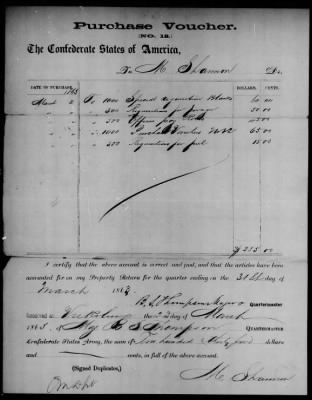 Purchase Voucher.
(NO. 12.)
The Confederate States of America,
To M Shannon Dr.
DATE OF PURCHASE. DOLLARS. CENTS.
1863
March 2 To 1000 Blanks 60 00
" 500 Requisitions for forage 50 00
" 500 pay
" 1000 Purchase Vouchers 65 00
" 500 Requisitions for fuel 15 00
$ 235 00
I certify that the above account is correct and just, and that the articles have been
accounted for on my Property Return for the quarter ending on the 31st day of
March 1863.
Quartermaster
Received at Vicksburg the day of March
1863, of Maj Thompson QUARTERMASTER
Confederate States Army, the sum of Two hundred dollars
and cents, in full of the above account.
(Signed Duplicates,)
M Shannon